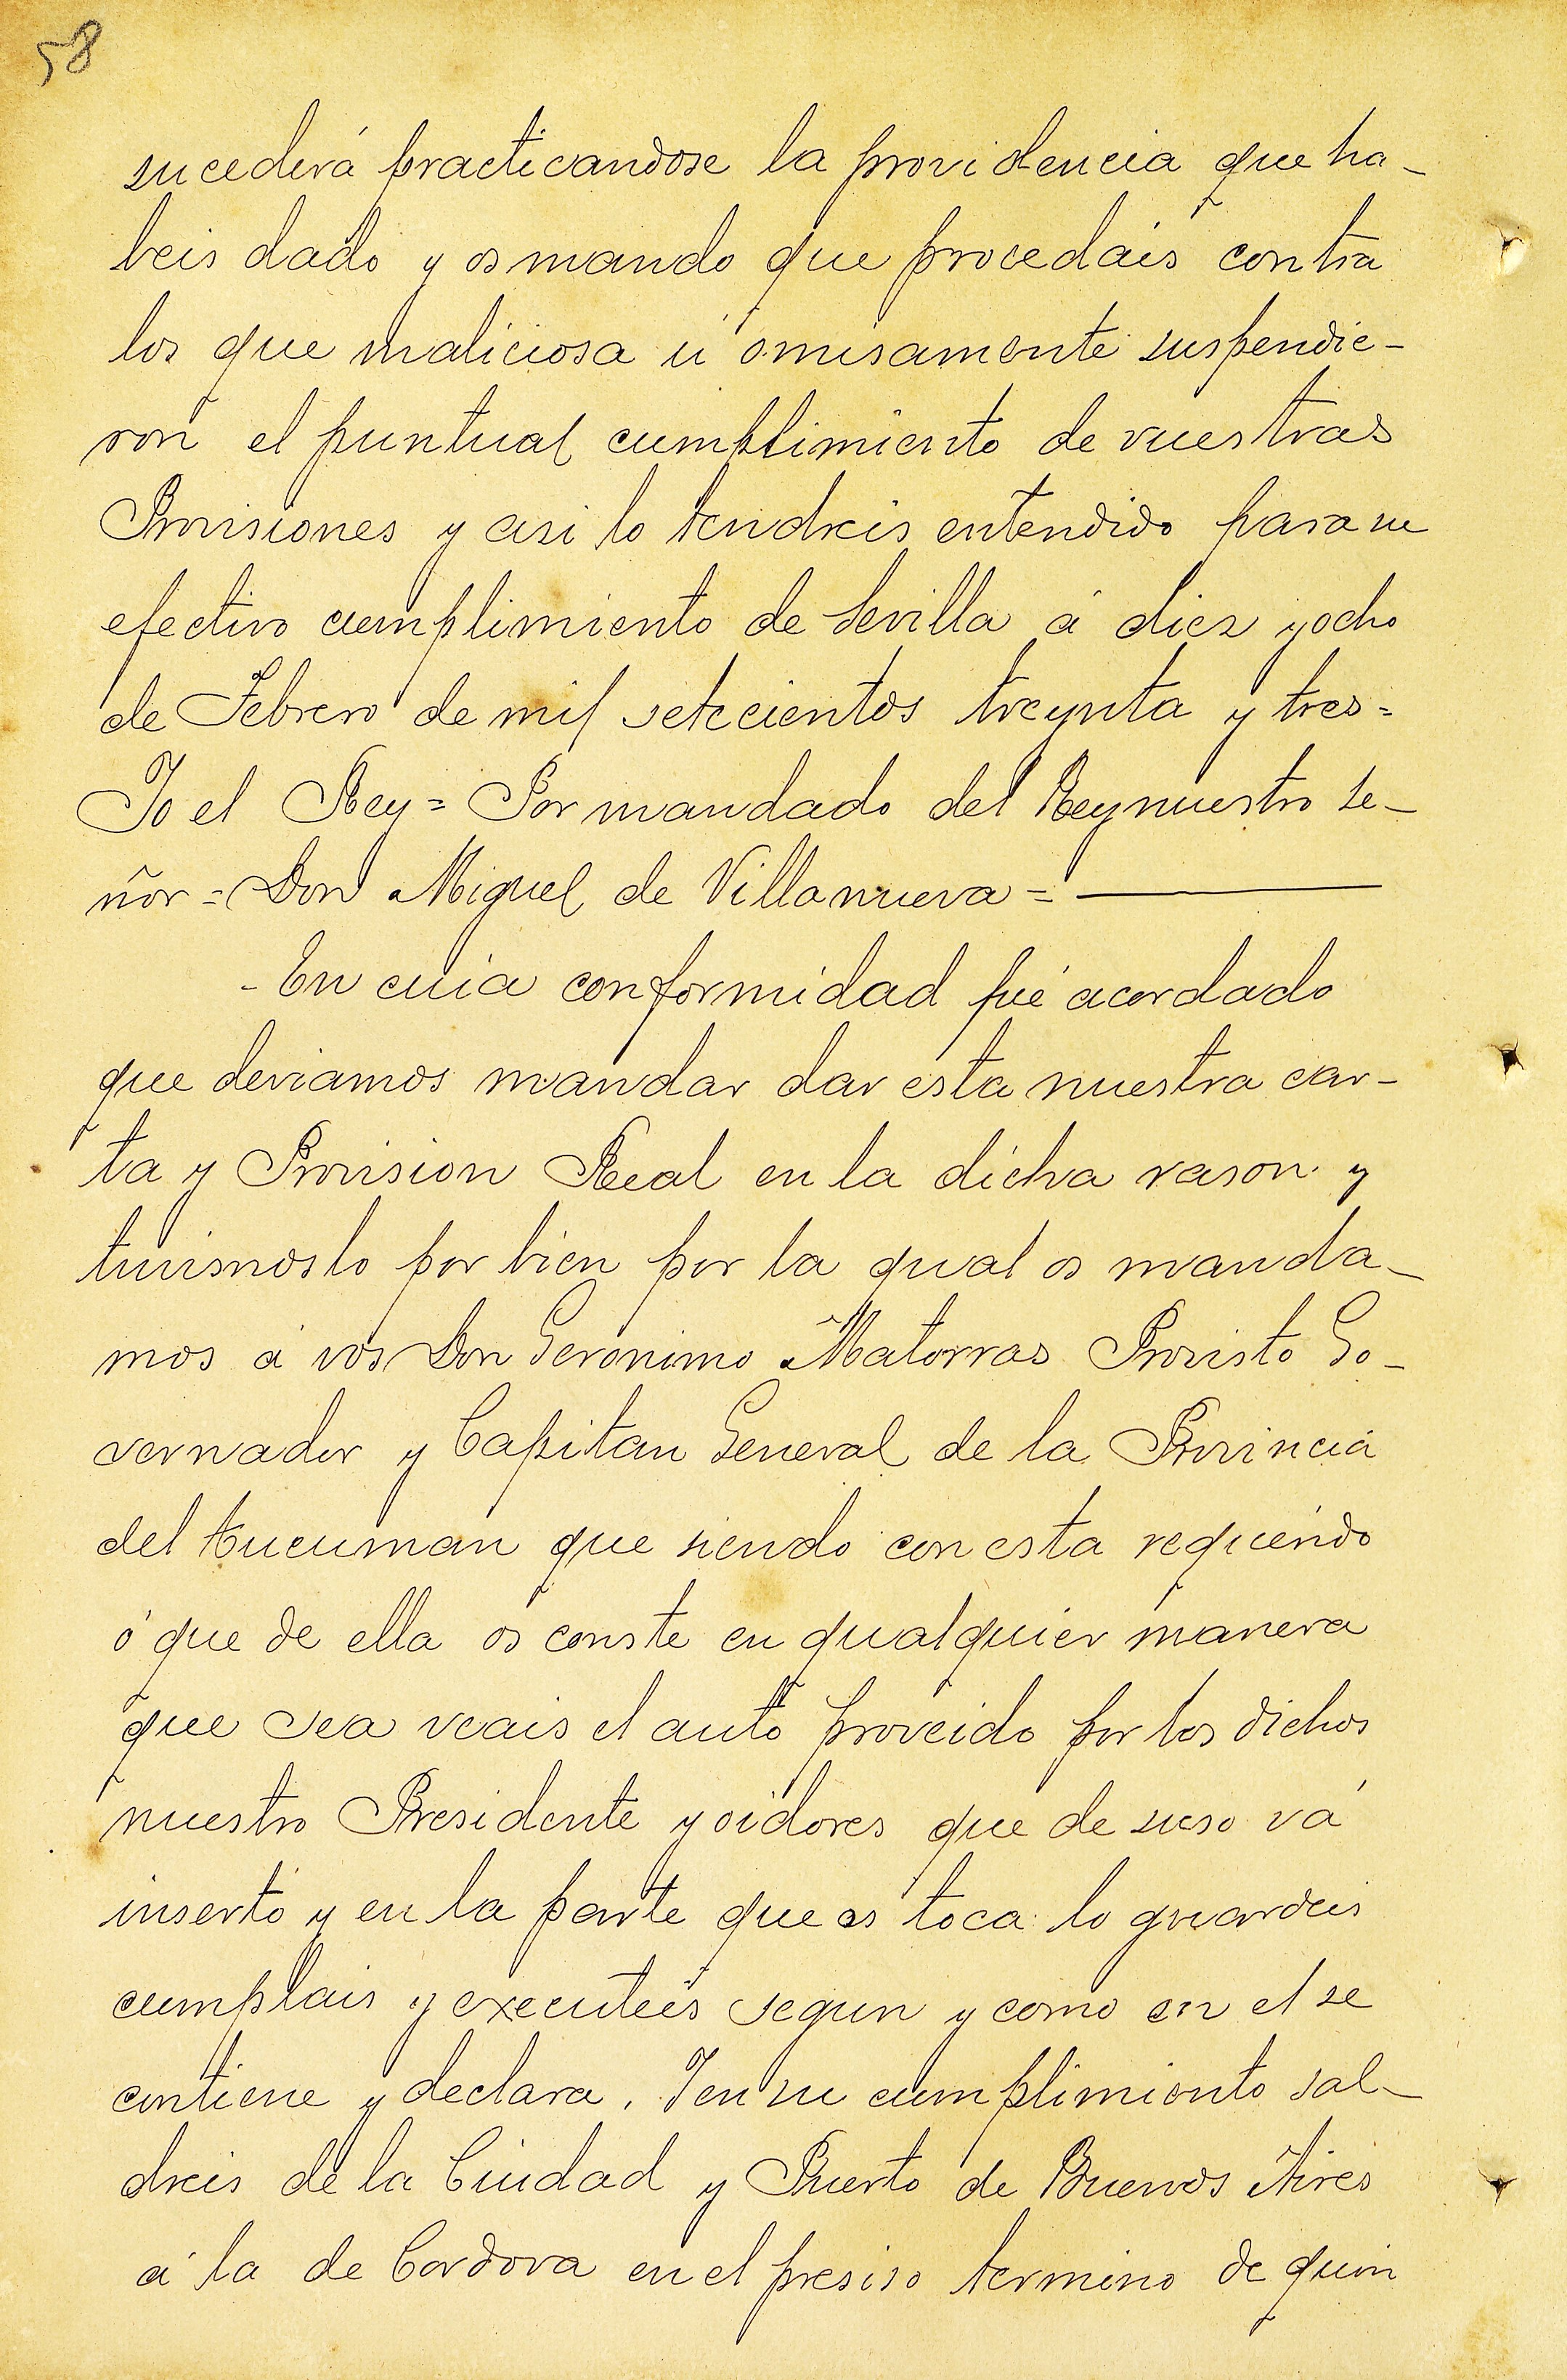 58
sucederá practicandose la providencia que ha-
beis dado y os mando que procedáis contra
los que maliciosa ú omisamente suspendie-
ron el puntual cumplimiento de vuestras
Provisiones y asi lo tendreis entendido para su
efectivo cumplimiento de Sevilla á diez y ocho
de Febrero de mil setecientos treynta y tres=
Yo el Rey= Por mandado del Rey nuestro se-
ñor= Don Miguel de Villanueva=
-En cuia conformidad fué acordado
que deviamos mandar dar esta nuestra car-
ta y Provision Real en la dicha rason y
tuvismoslo por bien por la qual os manda-
mos á vos Don Geronimo Matorras Provisto Go-
vernador y Capitan General de la Provincia
del tucuman que siendo con esta requerido
ó que de ella os conste en qualquier manera
que sea veais el auto proveido por los dichos
nuestro Presidente y oidores que de suso vá
inserto y en la parte que os toca lo guardeis
cumplais y executeis segun y como en el se
contiene y declara. Y en su cumplimiento sal-
dreis de la Ciudad y Puerto de Buenos Aires
á la de Cordova en el presiso termino de quin